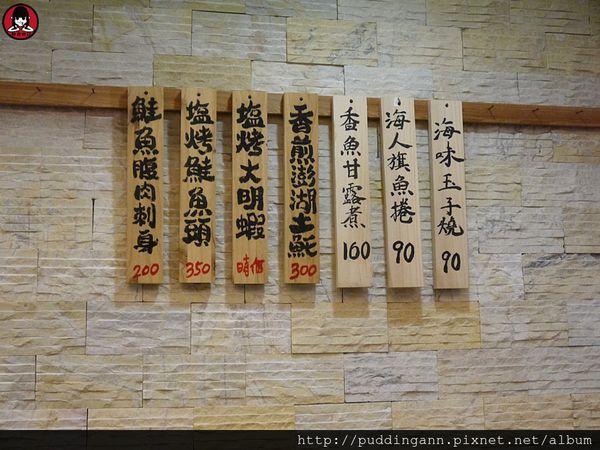 鮭魚腹肉刺身
200
塩烤鮭魚頭
350
塩烤大明蝦
時價
香煎澎湖土魠
300
香魚甘露煮
160
海人旗魚捲
90
海味玉子燒
90
http://puddingann.pixnet.net/album